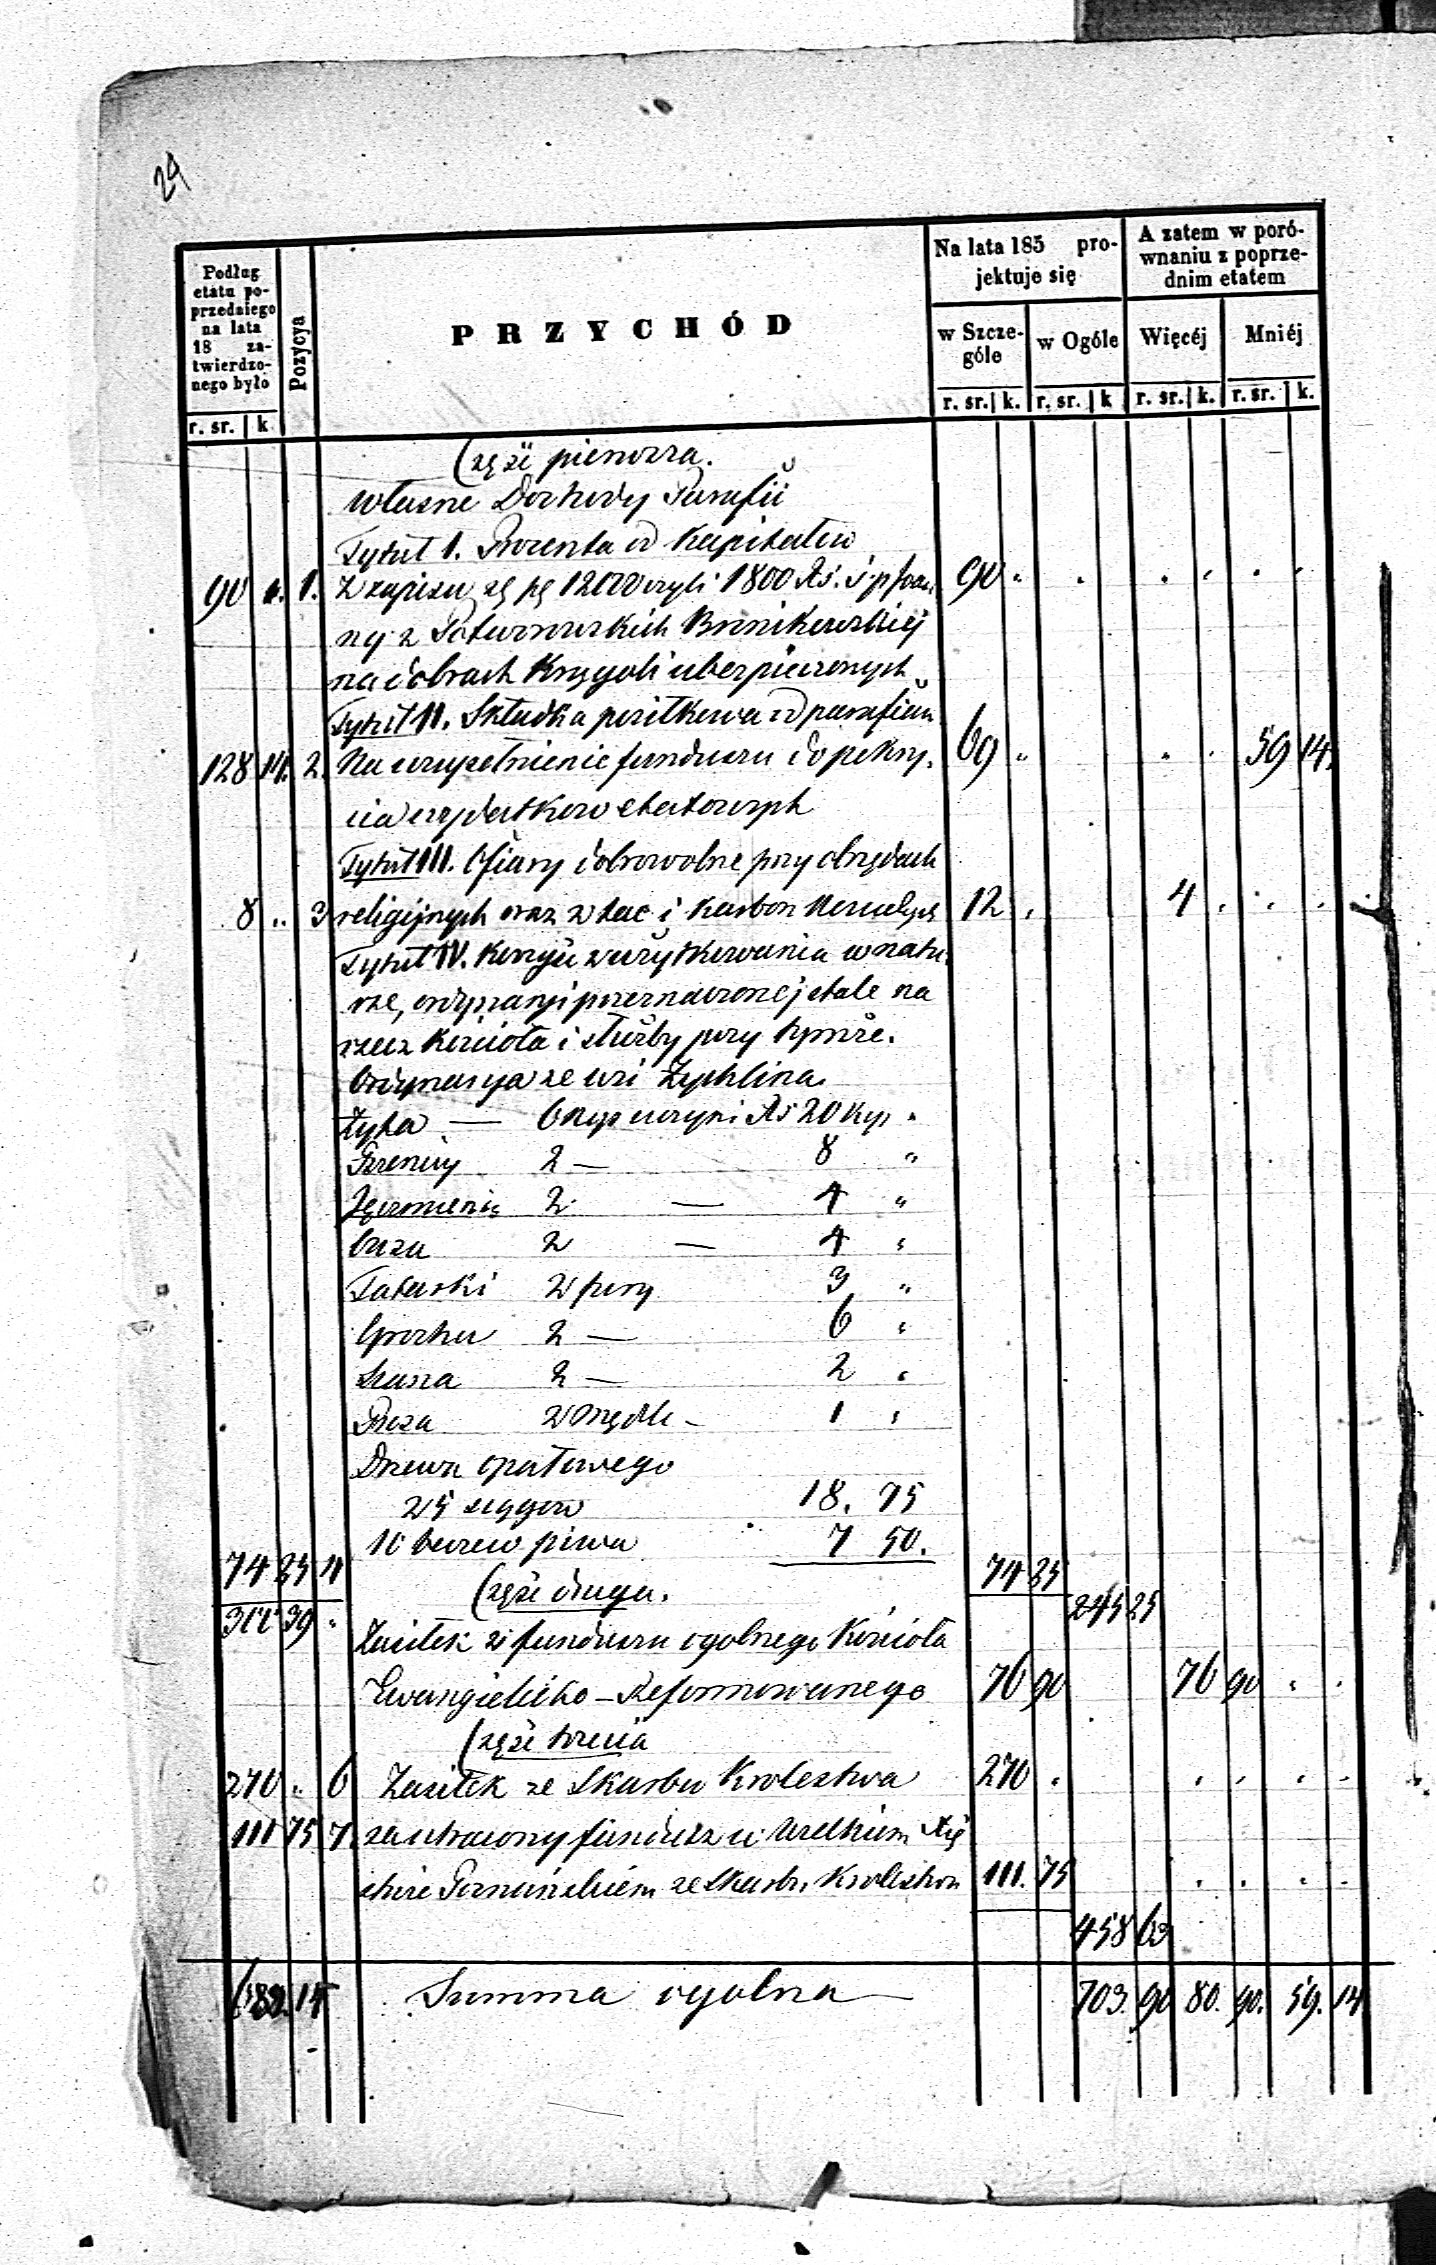 29
Podług etatu poprzedniego na lata 18 zatwierdzonego było
Pozycya
PRZYCHÓD
Na lata 185 projektuje się
A zatem w porównaniu z poprzednim etatem
w Szczególe
w Ogóle
Więcéj
Mniéj
r. sr. k r. sr. k. r. sr. k r. sr. k. r. sr. k.
Część pierwsza.
Własne Dochody Parafii
Tytuł I. Procenta od Kapitałów
90 " 1. Z zapisu zł pl 12000 czyli 1800 Rs. ś p 90 "
ny z Potworowskich Bronikowskiej
na dobrach Kręgoli ubezpieczonych
Tytuł II. Składka posiłkowa od parafian
128 14. 2. Na uzupełnienie funduszu do pokry- 69 " 59 14.
cia wydatkow etatowych
Tytuł III. Ofiary dobrowolne przy obrzędach
8 " 3 religijnych oraz z tac i karbon 12 . 4 .
Tytuł IV. Korzyści z użytkowania w natu-
rze, ordynaryi przeznaczonej stale na
rzecz Kościoła i służby przy tymże.
Ordynarya ze wsi Żychlina
Żyta — 6 czyni Rs 20 Kop "
Pszenicy 2 — 8 "
Jęczmienia 2 — 4 "
Owsa 2 — 4 "
Tatarki 2 3 "
Grochu 2 — 6 "
Siana 2 — 2 "
Drzewa opałowego
25 sągow 18. 75
10 piwa 7 50.
74 25 4 74 25
Część druga.
300 39 " 245 25
Zasiłek z funduszu ogolnego Kościoła
Ewangielicko-Reformowanego 76 90 76 90 " .
Część trzecia
270 " 6 Zasiłek ze Skarbu Krolestwa 270 .
111 75 7. za utracony fundusz w Wielkiem Xię
stwie Poznańskiem ze Skarbu Krolestwa 111. 75
458 63
682. 14 Summa ogolna 703. 90 80. 90. 59. 14